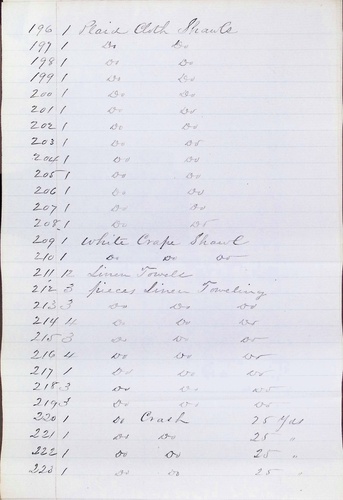 196 1 Plaid Cloth Shawls
197 1 Do Do
198 1 Do Do
199 1 Do Do
200 1 Do Do
201 1 Do Do
202 1 Do Do
203 1 Do Do
204 1 Do Do
205 1 Do Do
206 1 Do Do
207 1 Do Do
208 1 Do Do
209 1 White Crape Shawl
210 1 Do Do Do
211 12 Linen Towels
212 3 pieces Linen Toweling
213 3 Do Do Do
214 4 Do Do Do
215 3 Do Do Do
216 4 Do Do Do
217 1 Do Do Do
218 3 Do Do Do
219 3 Do Do Do
220 1 Do Crash 25 Yds
221 1 Do Do 25 "
222 1 Do Do 25 "
223 1 Do Do 25 "